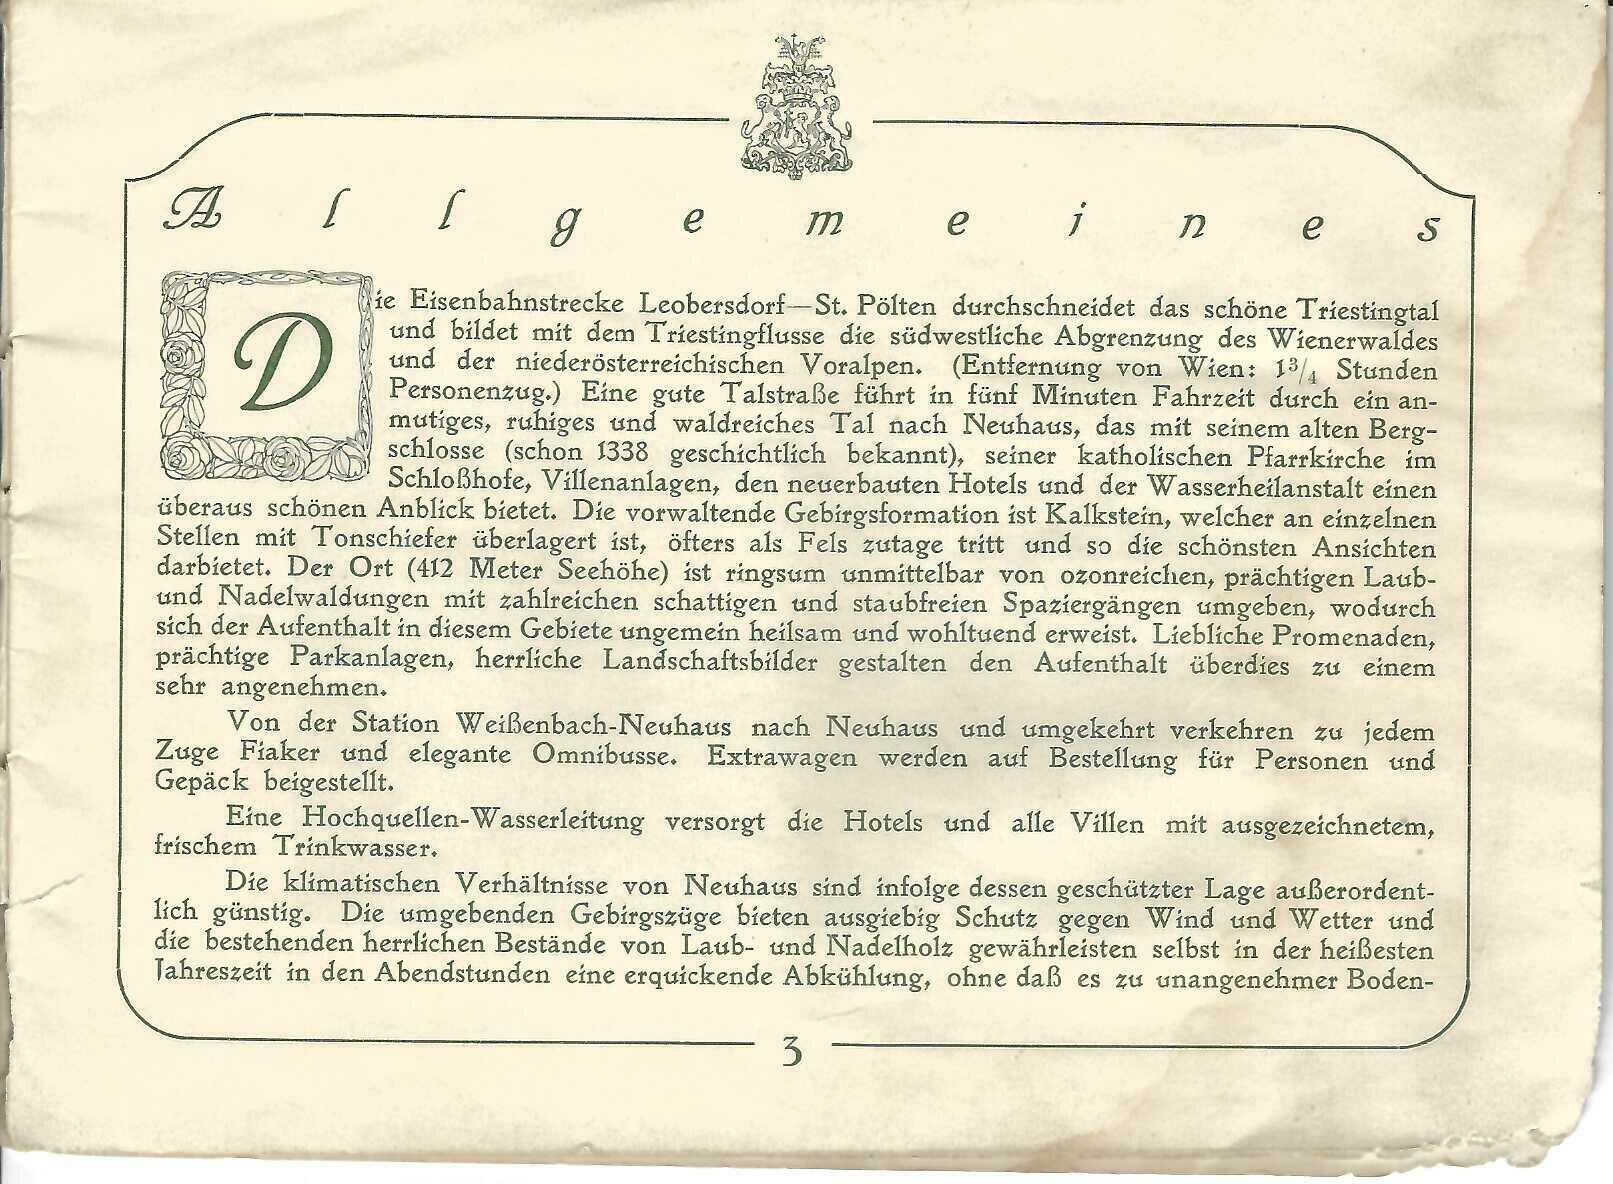 Allgemeines
Die Eisenbahnstrecke Leobersdorf—St. Pölten durchschneidet das schöne Triestingtal
und bildet mit dem Triestingflusse die südwestliche Abgrenzung des Wienerwaldes
und der niederösterreichischen Voralpen. (Entfernung von Wien: 1 3/4 Stunden
Personenzug.) Eine gute Talstraße führt in fünf Minuten Fahrzeit durch ein an-
mutiges, ruhiges und waldreiches Tal nach Neuhaus, das mit seinem alten Berg-
schlosse (schon 1338 geschichtlich bekannt), seiner katholischen Pfarrkirche im
Schloßhofe, Villenanlagen, den neuerbauten Hotels und der Wasserheilanstalt einen
überaus schönen Anblick bietet. Die vorwaltende Gebirgsformation ist Kalkstein, welcher an einzelnen
Stellen mit Tonschiefer überlagert ist, öfters als Fels zutage tritt und so die schönsten Ansichten
darbietet. Der Ort (412 Meter Seehöhe) ist ringsum unmittelbar von ozonreichen, prächtigen Laub-
und Nadelwaldungen mit zahlreichen schattigen und staubfreien Spaziergängen umgeben, wodurch
sich der Aufenthalt in diesem Gebiete ungemein heilsam und wohltuend erweist. Liebliche Promenaden,
prächtige Parkanlagen, herrliche Landschaftsbilder gestalten den Aufenthalt überdies zu einem
sehr angenehmen.
Von der Station Weißenbach-Neuhaus nach Neuhaus und umgekehrt verkehren zu jedem
Zuge Fiaker und elegante Omnibusse. Extrawagen werden auf Bestellung für Personen und
Gepäck beigestellt.
Eine Hochquellen-Wasserleitung versorgt die Hotels und alle Villen mit ausgezeichnetem,
frischem Trinkwasser.
Die klimatischen Verhältnisse von Neuhaus sind infolge dessen geschützter Lage außerordent-
lich günstig. Die umgebenden Gebirgszüge bieten ausgiebig Schutz gegen Wind und Wetter und
die bestehenden herrlichen Bestände von Laub- und Nadelholz gewährleisten selbst in der heißesten
Jahreszeit in den Abendstunden eine erquickende Abkühlung, ohne daß es zu unangenehmer Boden-
3